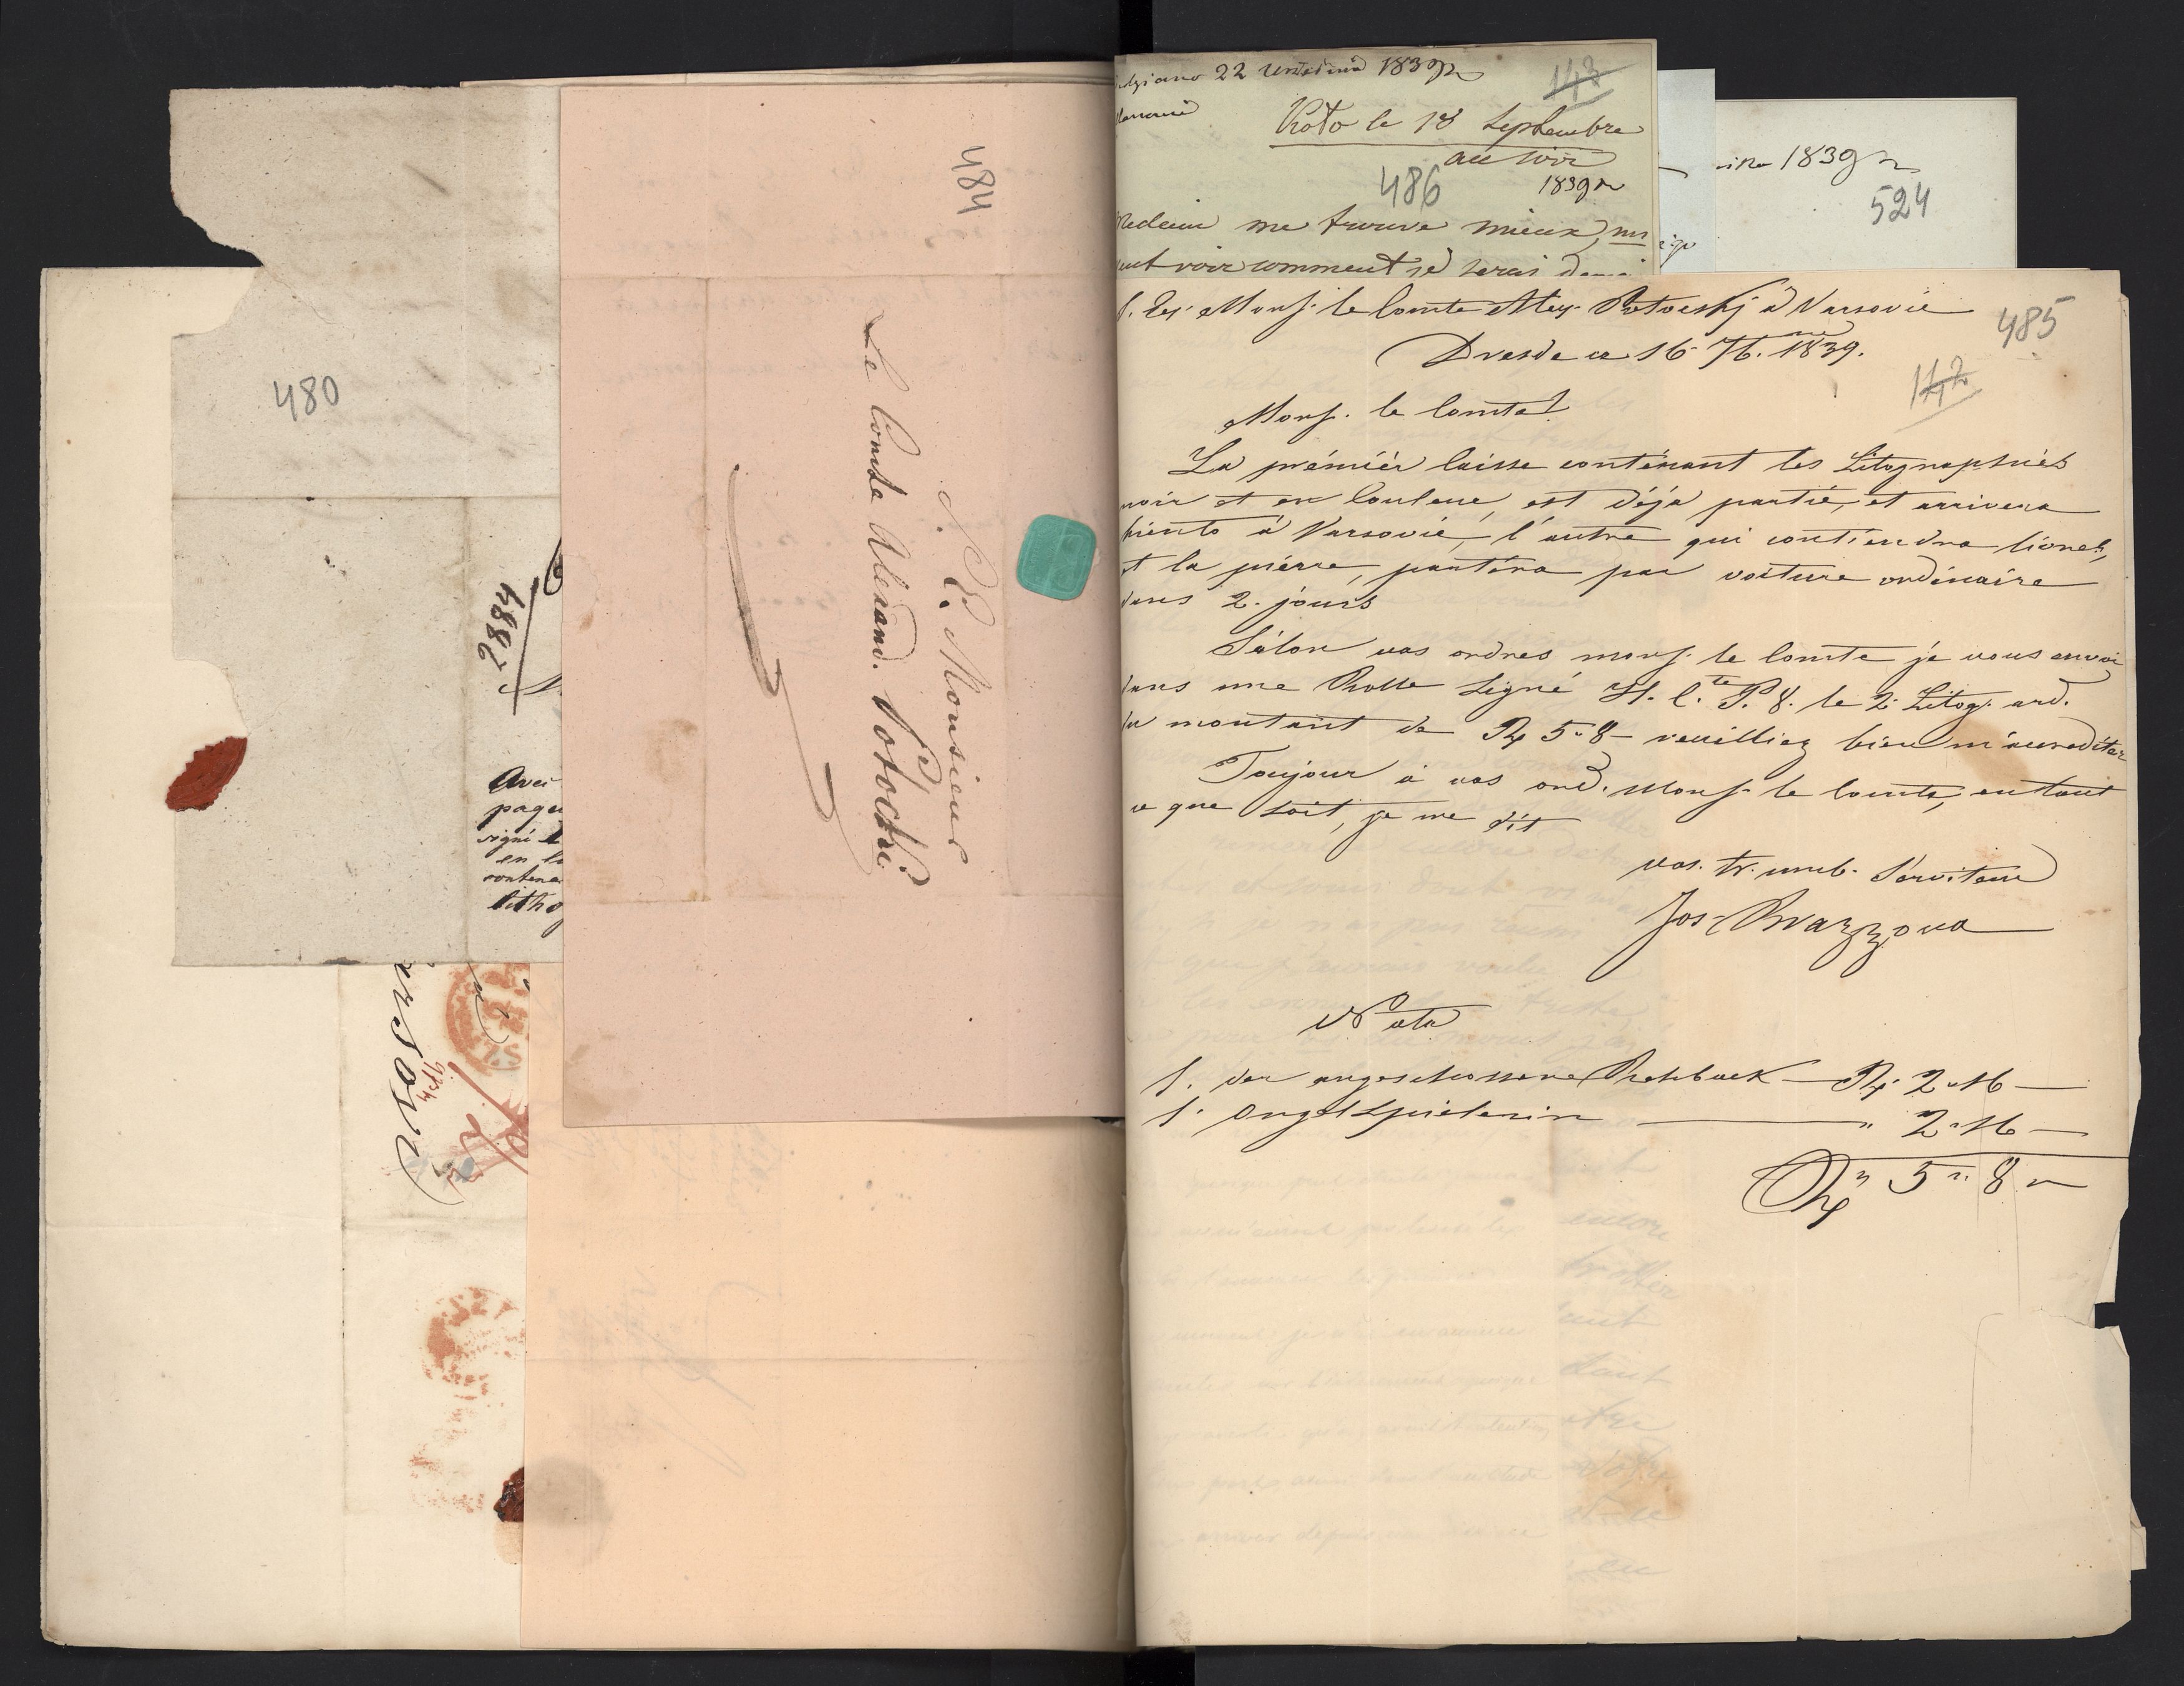 480
2884
Avec
page
signé
en
contena
litho
484
S. E. Monsieur
Le Comte Alexand. Potocki
22 1839 r
143
Koło le 18 Septembre
au soir
486
1839 r
me trouve mieux,
voir comment je serai
1839 r
524
Mons. le Comte Alex. Potocskj à Varsovie
485
Dresde ce 16 7b. 1839.
142
Mons. le Comte!
La prémiér caisse conténant les Litographiés
noir et en Couleur, est déja partié, et arrivera
biento á Varsovié, l'autre qui contiendra livret,
et la pièrre, partira par voiture ordinaire
dans 2. jours
Sélon vos ordres mons. le Comte je vous envoi
dans une Rolle signé H. C.te P. 8. le 2 Litog. ard.
du montant de Rx 5 " 8 — veuilliez bien m'acreditér
Toujour á vos ord. Mons. le Comte, en tout
ce que soit, je me dit
vos. tr. umb. Serviteur
Jos. Bvazzova
Nota
1. der angeschossene Rehbock — Rx 2 " 16 —
1. Orgelspielerin — " 2 " 16 —
Rx 5 " 8 "